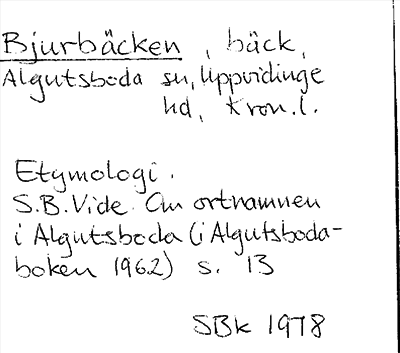 Bjurbäcken, bäck,
Algutsboda sn, Uppvidinge
hd, Kron.l.
Etymologi.
S.B.Vide. Om ortnamnen
i Algutsboda (i Algutsboda-
boken 1962) s. 13
SBk 1978